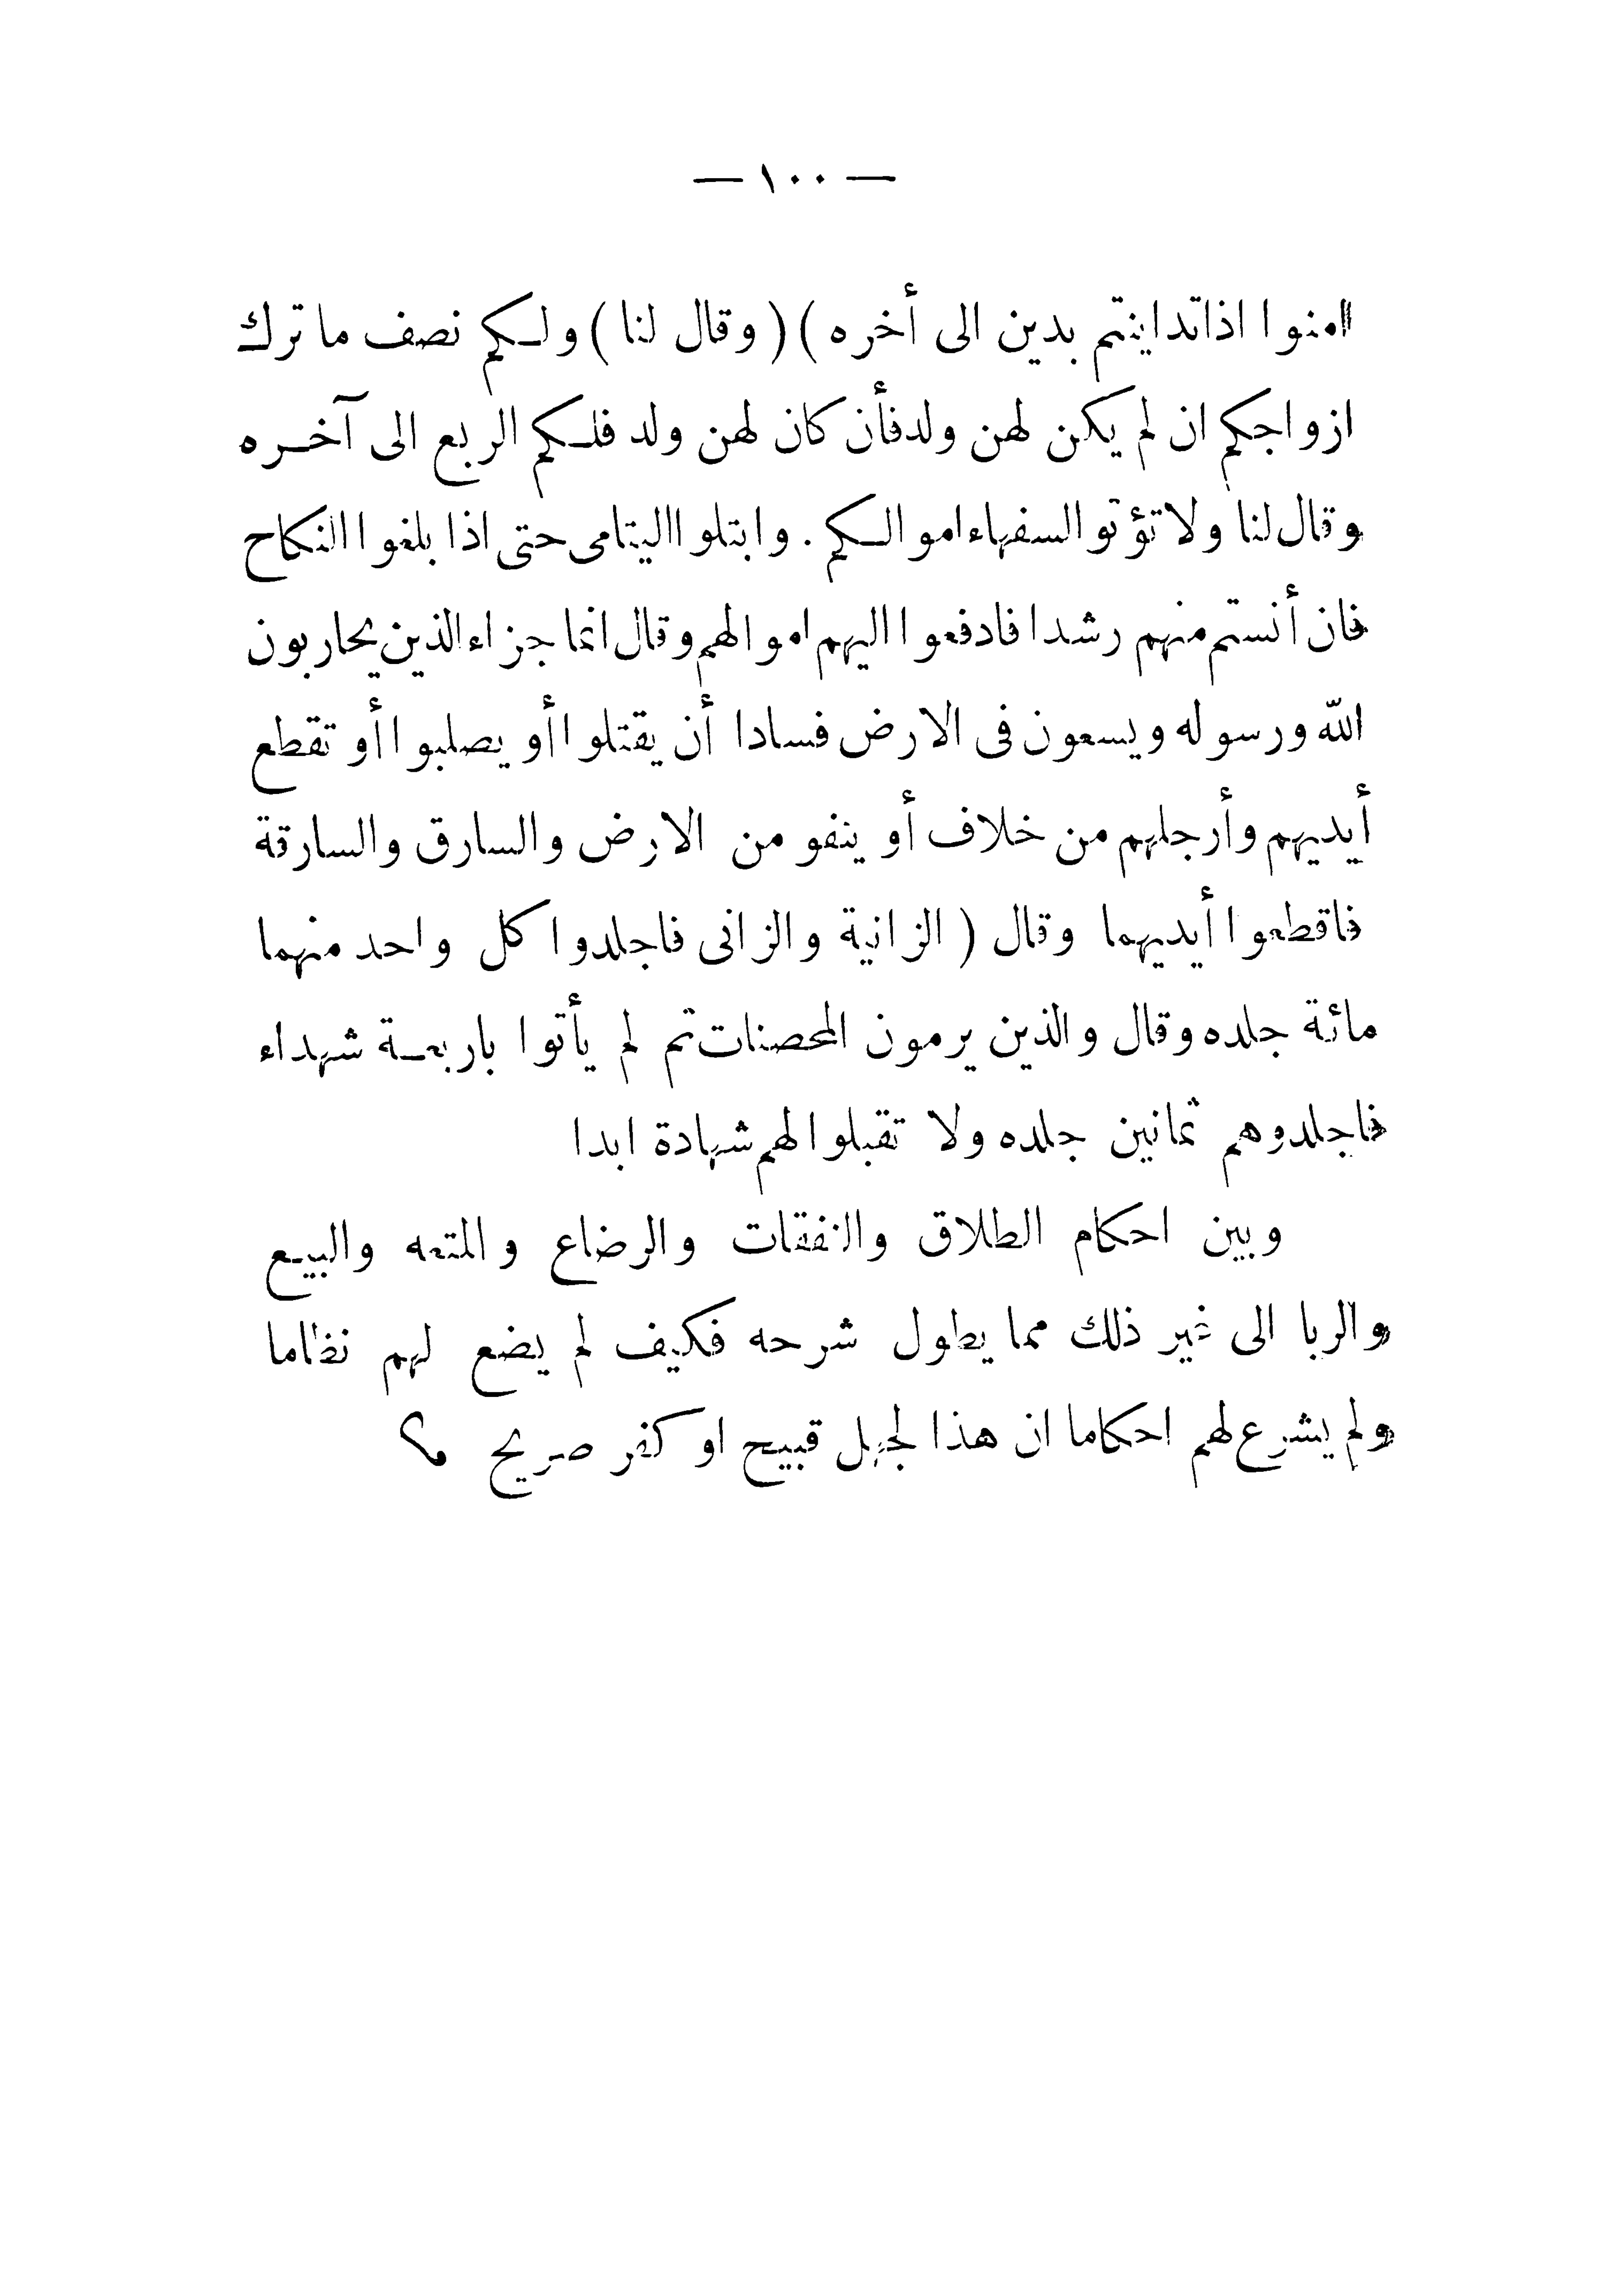 — ١٠٠ —
امنوا اذا تداينتم بدين الى أخره ) ( وقال لنا ) ولكم نصف ما ترك
ازواجكم ان لم يكن لهن ولد فأن كان لهن ولد فلكم الربع الى آخره
وقال لنا ولا تؤتوا السفهاء اموالكم . وابتلوا اليتامى حتى اذا بلغوا النكاح
فان أنستم منهم رشدا فادفعوا اليهم اموالهم وقال انما جزاء الذين يحاربون
الله ورسوله ويسعون فى الارض فسادا أن يقتلوا أو يصلبوا أو تقطع
أيديهم وأرجلهم من خلاف أو ينفو من الارض والسارق والسارقة
فاقطعوا أيديهما وقال ( الزانية والزانى فاجلدوا كل واحد منهما
مائة جلده وقال والذين يرمون المحصنات تم لم يأتوا باربعة شهداء
فاجلدوهم ثمانين جلده ولا تقبلوا لهم شهادة ابدا
وبين احكام الطلاق والنفقات والرضاع والمتعه والبيع
والربا الى غير ذلك مما يطول شرحه فكيف لم يضع لهم نظاما
ولم يشرع لهم احكاما ان هذا لجهل قبيح او كفر صريح ؟